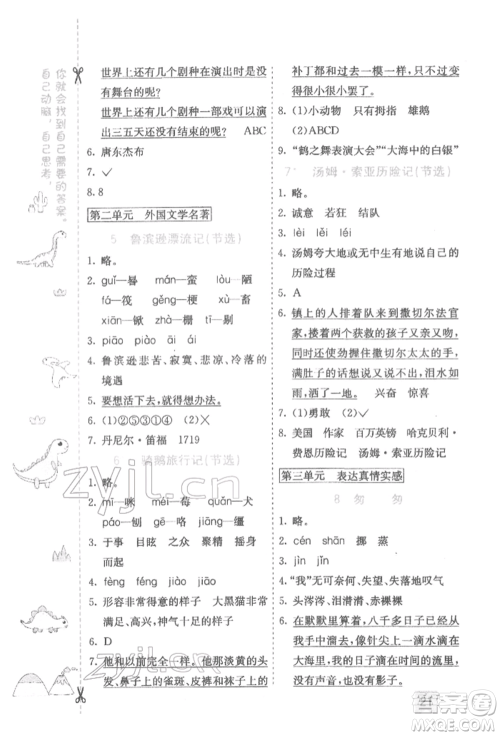 你就会找到自己需要的答案。
自己动脑，自己思考，
世界上还有几个剧种在演出时是没
有舞台的？
世界上还有几个剧种一部戏可以演
出三五天还没有结束的呢？ ABC
6. 唐东杰布
7. ✓
8. 8
第二单元 外国文学名著
5 鲁滨逊漂流记(节选)
1. 略。
2. guǐ—诡 mán—蛮 lòu—陋
fá—筏 gěng—梗 xù—畜
xiàn—锨
3. piāo piào āi fā
4. 鲁滨逊悲苦、寂寞、悲凉、冷落的
境遇
5. 要想活下去，就得想办法。
6. (1)②⑤③①④ (2)×
7. 丹尼尔·笛福 1719
6 骑鹅旅行记(节选)
1. 略。
2. mī—咪 méi—莓 quǎn—犬
páo—刨 gē—咯 jiāng—缰
3. 于事 目眩 之众 聚精 湿身
而动
4. fèng féng jiào xiāo
5. 形容非常生气的样子 大黑猫加倍
生气的样子
6. D
7. 他和以前完全一样。他那淡黄的头
发、鼻子上的雀斑、皮裤和袜子上的
补丁都和过去一模一样，只不过变得
很小很小罢了。
8. (1)小动物 只有拇指 雄鹅
(2)ABCD
9. “鹤之舞表演大会” “大海中的白银”
7 汤姆·索亚历险记(节选)
1. 略。
2. 诚意 若狂 结队
3. lèi lěi léi
4. 汤姆夸大地或无中生有地讲自己的
历险过程
5. A
6. 镇上的人排着队来到撒切尔法官
家，搂着两个获救的孩子又亲又吻，
使劲地握住撒切尔太太的手，
满肚子的话想说又说不出来，泪水如
雨，洒了一地。 兴奋 惊喜
7. (1)勇敢 (2)✓
8. 美国 作家 百万英镑 哈克贝利·
费恩历险记 汤姆·索亚历险记
第三单元 表达真情实感
8 匆匆
1. 略。
2. cén shān 挪 蒸
3. jìn jǐn
4. “我”无可奈何、失望、失落地叹气
5. 头涔涔、泪潸潸、赤裸裸
6. 在默默里算着，八千多日子已经从
我手中溜去，像针尖上一滴水滴在
大海里，我的日子滴在时间的流里，
没有声音，也没有影子。
zyjl.cn
zyjl.cn
答案圈